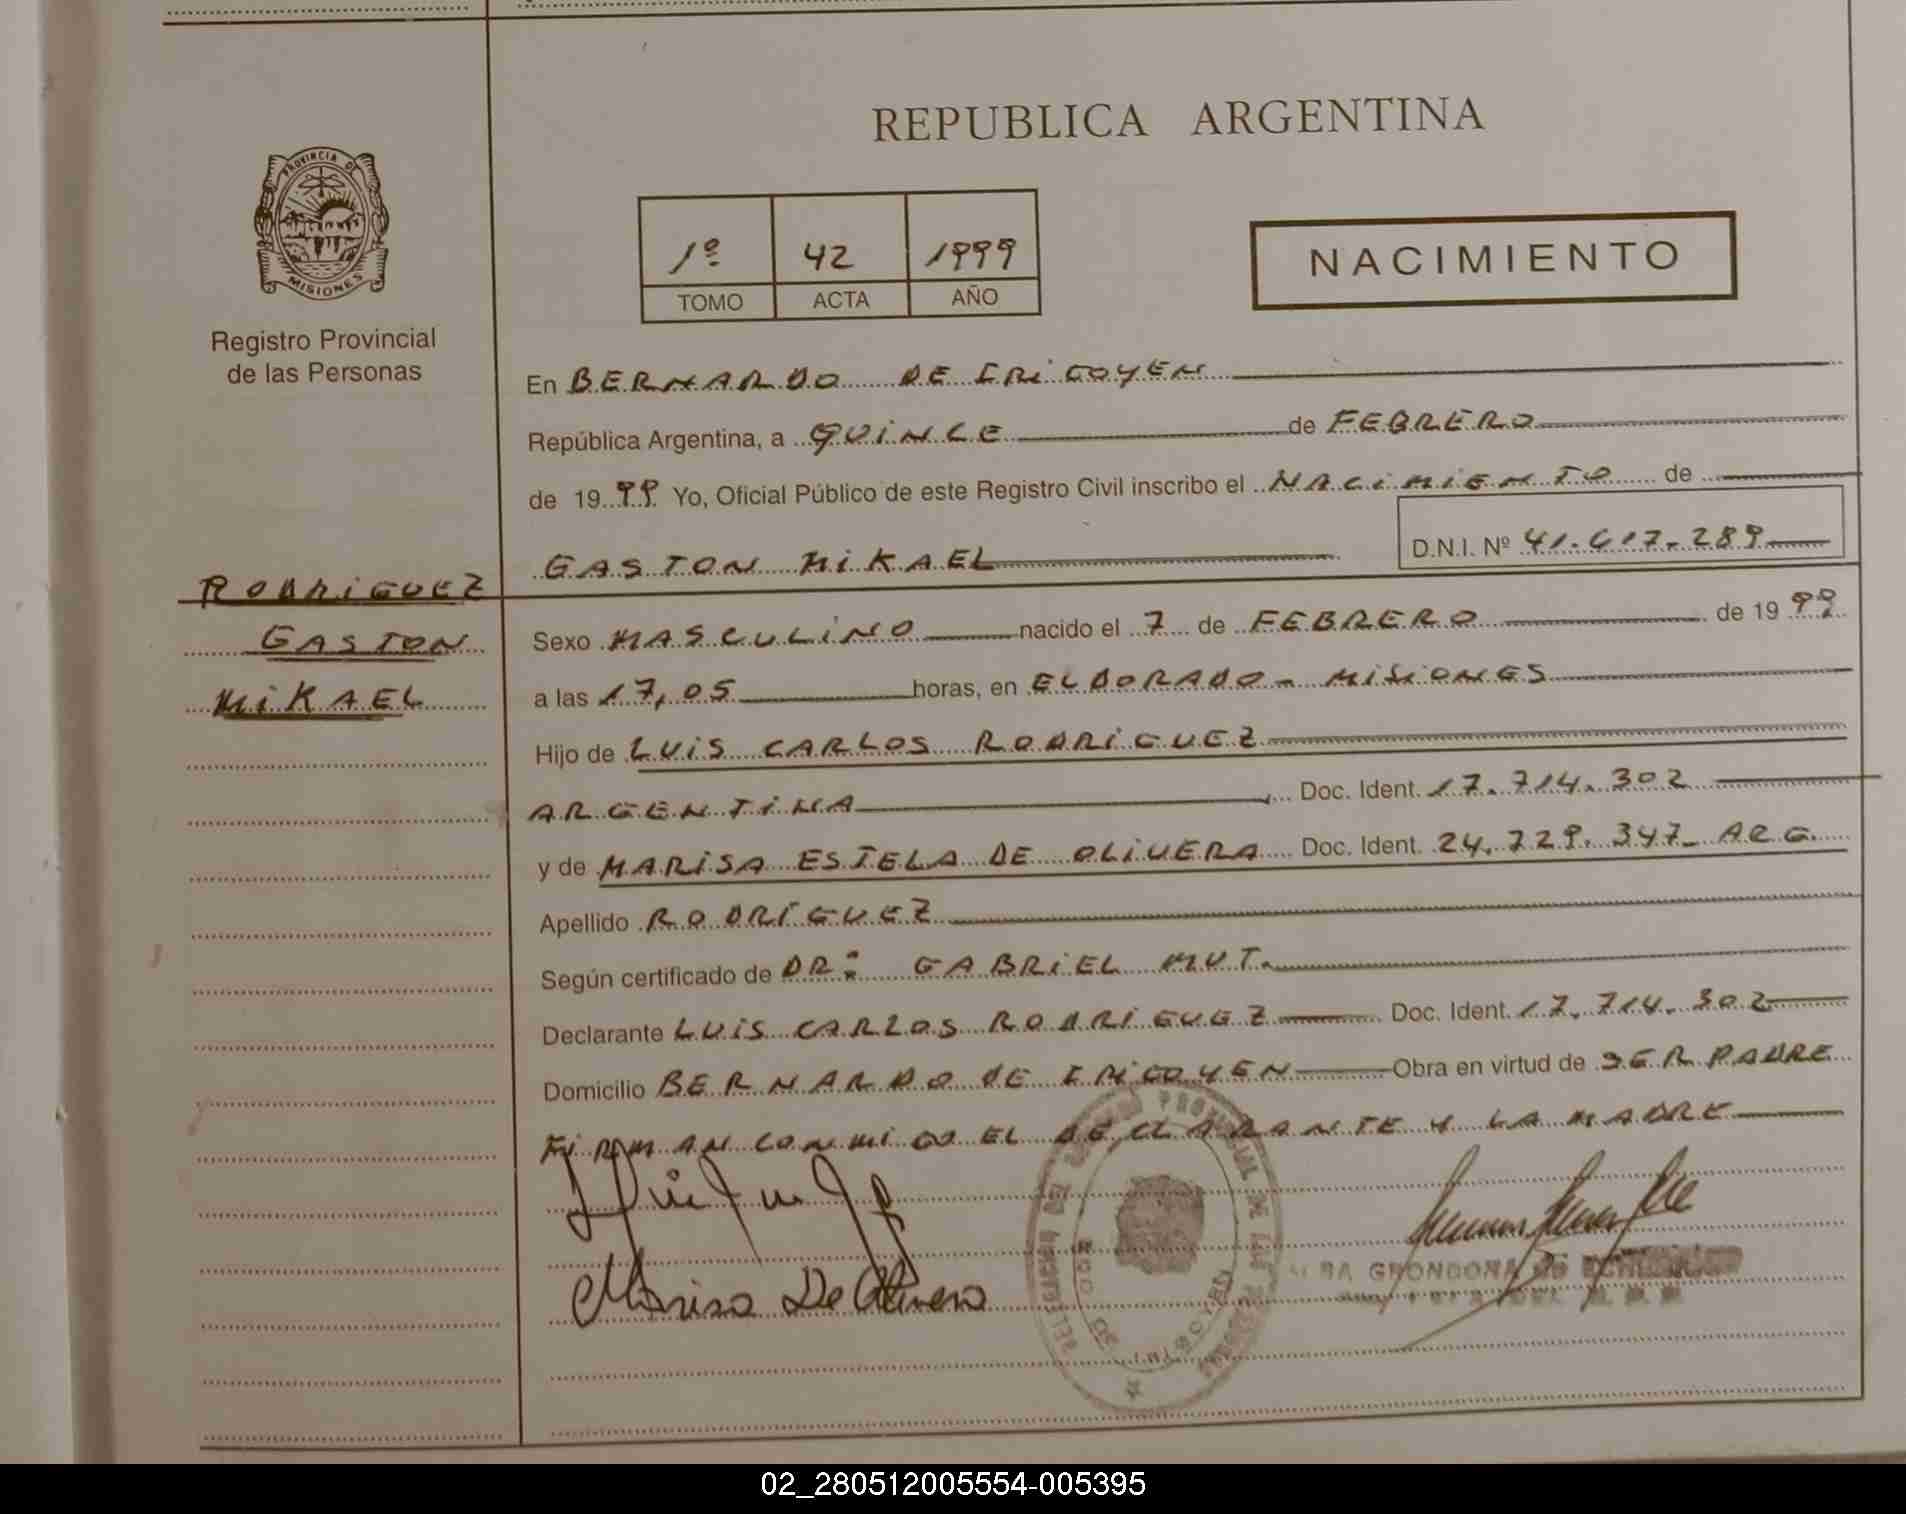 REPUBLICA ARGENTINA
PROVINCIA DE
MISIONES
Registro Provincial
de las Personas
1º 42 1999
TOMO ACTA AÑO
NACIMIENTO
En BERNARDO DE IRIGOYEN
República Argentina, a QUINCE de FEBRERO
de 1999 Yo, Oficial Público de este Registro Civil inscribo el NACIMIENTO de
GASTON MIKAEL D.N.I. Nº 41.617.289
RODRIGUEZ
GASTON
MIKAEL
Sexo MASCULINO nacido el 7 de FEBRERO de 1999
a las 17,05 horas, en ELDORADO - MISIONES
Hijo de LUIS CARLOS RODRIGUEZ
ARGENTINA Doc. Ident. 17.714.302
y de MARISA ESTELA DE OLIVERA Doc. Ident. 24.729.347- ARG.
Apellido RODRIGUEZ
Según certificado de DR: GABRIEL MUT.
Declarante LUIS CARLOS RODRIGUEZ Doc. Ident. 17.714.302
Domicilio BERNARDO DE IRIGOYEN Obra en virtud de SER PADRE
FIRMAN CONMIGO EL DECLARANTE Y LA MADRE
Marisa De Olivera
GRONDONA DE
02_280512005554-005395